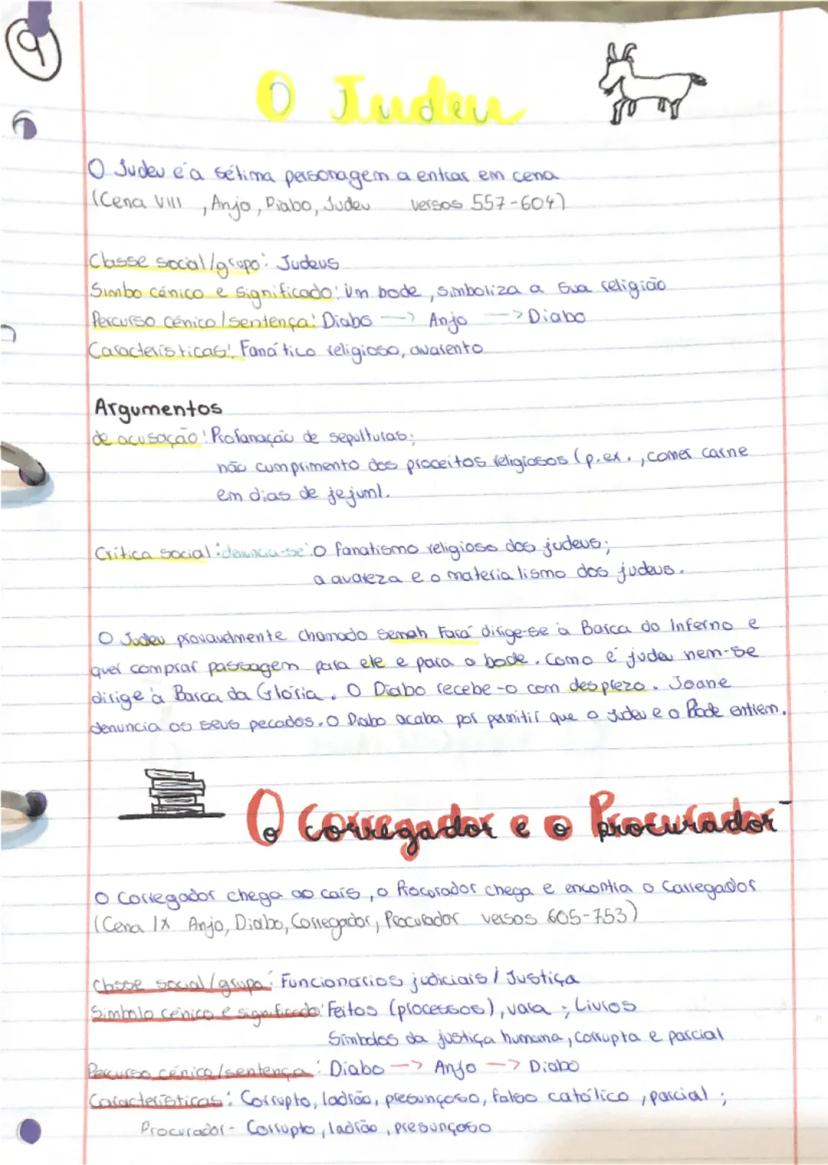 9
O Judeu
O Judeu é a sétima personagem a entrar em cena
(Cena VIII , Anjo, Diabo, Judeu versos 557-604)
Classe social/grupo: Judeus
Simbo cénico e significado: Um bode, simboliza a sua religião
Percurso cénico/sentença: Diabo -> Anjo -> Diabo
Características: Fanático religioso, avarento
Argumentos
de acusação: Profanação de sepulturas;
não cumprimento dos proceitos religiosos (p.ex., comer carne
em dias de jejum).
Crítica social: denuncia-se: O fanatismo religioso dos judeus;
a avareza e o materialismo dos judeus.
O Judeu provavelmente chamado Semah Fará dirige-se à Barca do Inferno e
quer comprar passagem para ele e para o bode. Como é judeu nem-se
dirige à Barca da Glória. O Diabo recebe-o com desprezo. Joane
denuncia os seus pecados. O Diabo acaba por permitir que o Judeu e o Bode entrem.
O Corregador e o Procurador
O Corregador chega ao cais, o Procurador chega e encontra o Corregador
(Cena IX Anjo, Diabo, Corregedor, Procurador versos 605-753)
Classe social/grupo: Funcionários judiciais / Justiça
Símbolo cénico e significado: Feitos (processos), vara ; Livros
Símbolos da justiça humana, corrupta e parcial
Percurso cénico/sentença: Diabo -> Anjo -> Diabo
Características: Corrupto, ladrão, presunçoso, falso católico, parcial ;
Procurador - Corrupto, ladrão, presunçoso